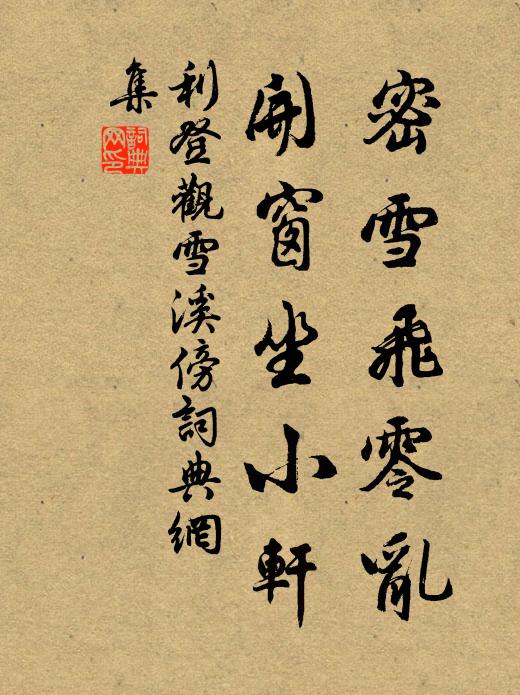 密雪飛零亂
開窗坐小軒
利登觀雪溪傍詞典網
集
詞典
网印